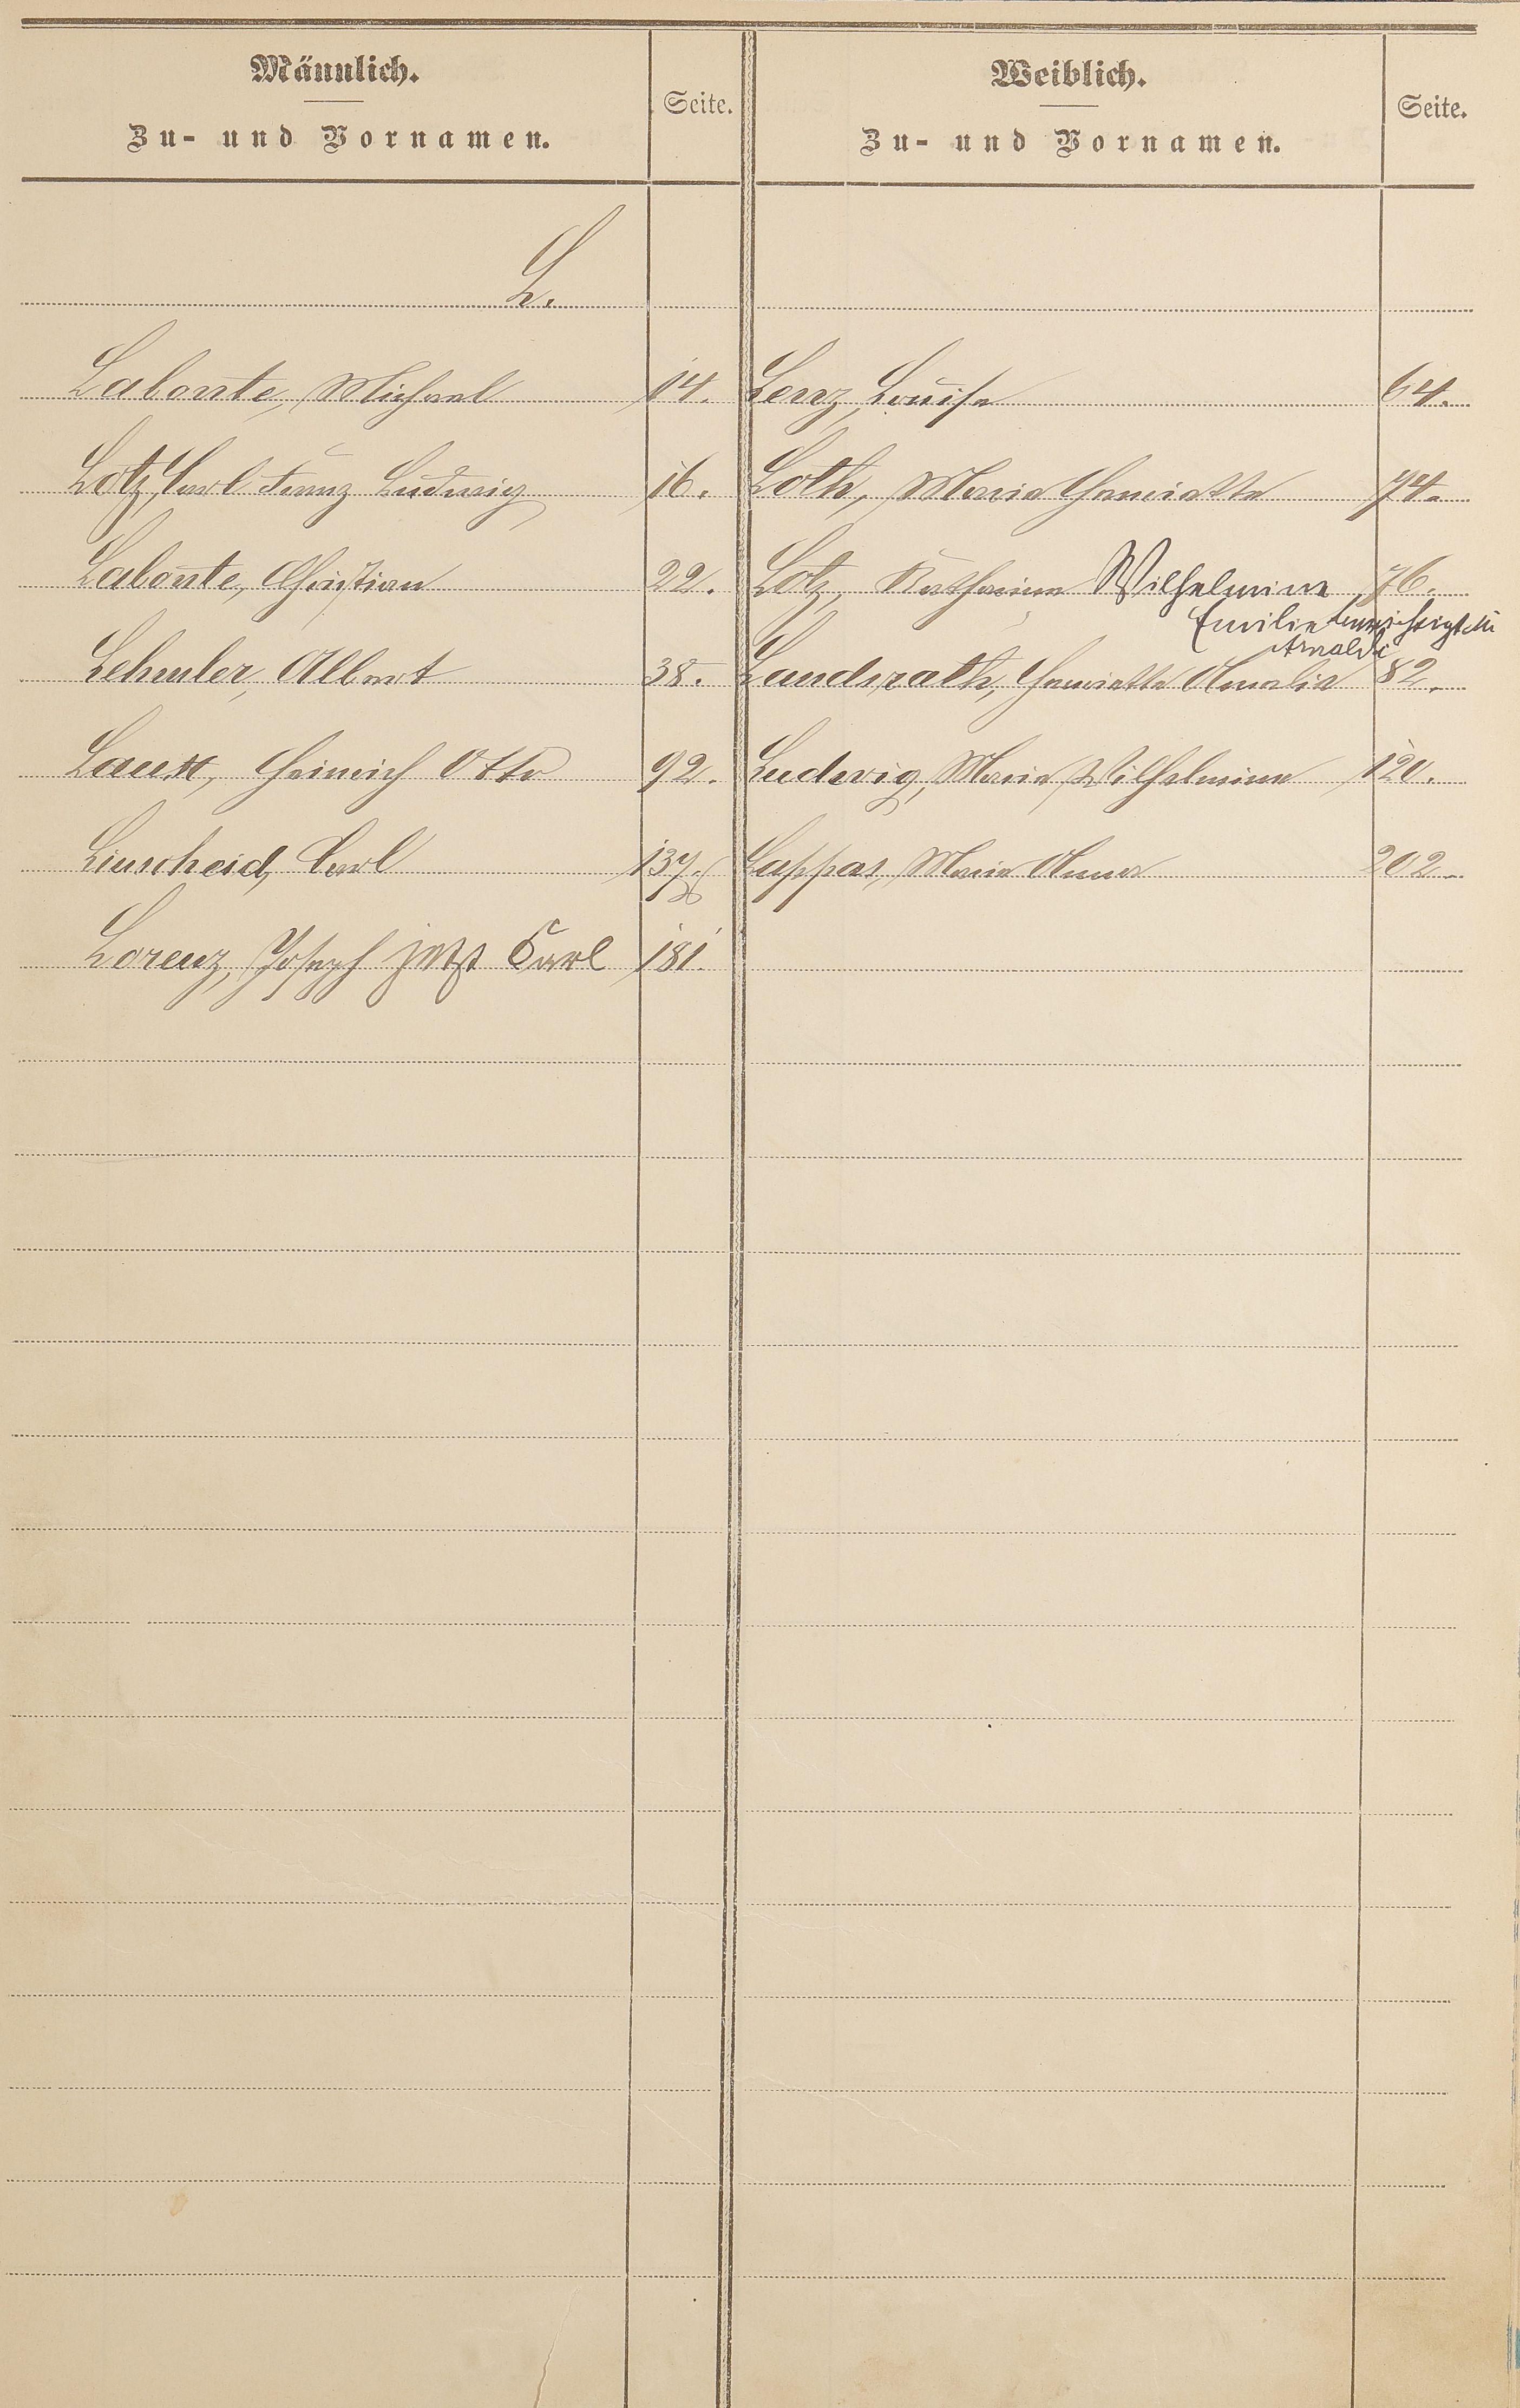 Männlich.
Zu- und Vornamen.
Seite.
Weiblich.
Zu- und Vornamen.
Seite.
L.
Labonte, Michael 14.
Lotz, Carl Franz Ludwig 16.
Labonte, Christian 22.
Lehmler, Albert 38.
Laux, Heinrich Otto 92.
Linscheid, Carl 137.
Lorenz, Joseph jetzt Carl 181.
Lenz, Louise 64.
Loth, Maria Henriette 74.
Lotz, Katharina Wilhelmine 76.
Emilie
Landsrath, Henriette Amalia 82.
Ludwig, Maria Wilhelmine 120.
Lappas, Maria Anna 202.